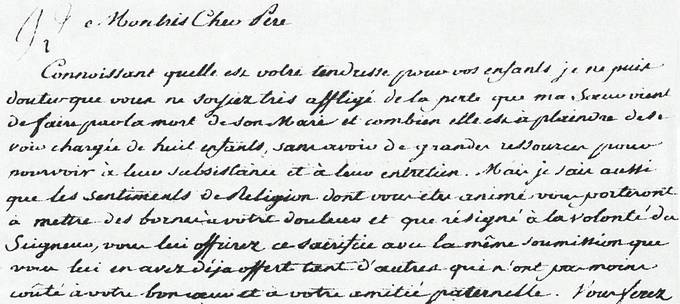 Mon très Cher Père
Connoissant quelle est votre tendresse pour vos enfants je ne puis
douter que vous ne soyiez très affligé de la perte que ma Sœur vient
de faire par la mort de son Mari et combien elle est à plaindre de se
voir chargée de huit enfants, sans avoir de grandes ressources pour
pourvoir à leur subsistance et à leur entretien. Mais je sais aussi
que les Sentiments de Religion dont vous etes animé vous porteront
à mettre des bornes à votre douleur et que résigné à la volonté du
Seigneur, vous lui offrirez ce sacrifice avec la même soumission que
vous lui en avez déja offert tant d'autres qui n'ont pas moins
couté à votre bon cœur et à votre amitié paternelle. Vous serez